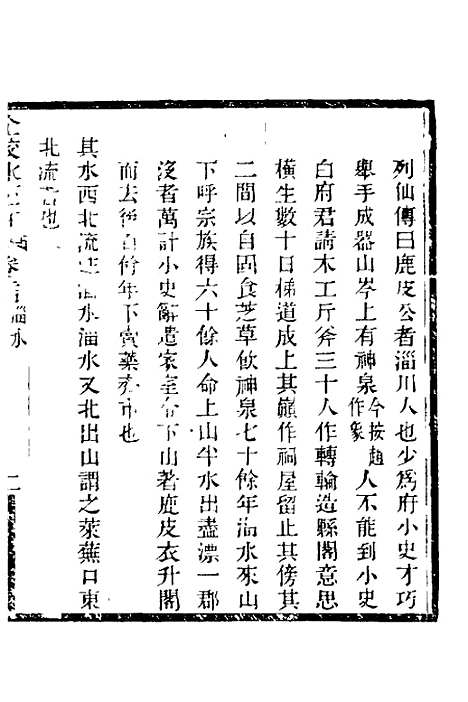 列仙傳曰鹿皮公者淄川人也少為府小史才巧
舉手成器山岑上有神泉今按趙作象人不能到小史
白府君請木工斤斧三十人作轉輪造縣閣意思
橫生數十日梯道成上其巔作祠屋留止其傍其
二間以自固食芝草飲神泉七十餘年淄水來山
下呼宗族得六十餘人命上山半水出盡漂一郡
沒者萬計小史辭遣家室令下山著鹿皮衣升閣
而去後百餘年下賣藥齊市也
其水西北流淄水淄水又北出山謂之萊蕪口東
北流者也
水 卷 淄水
二